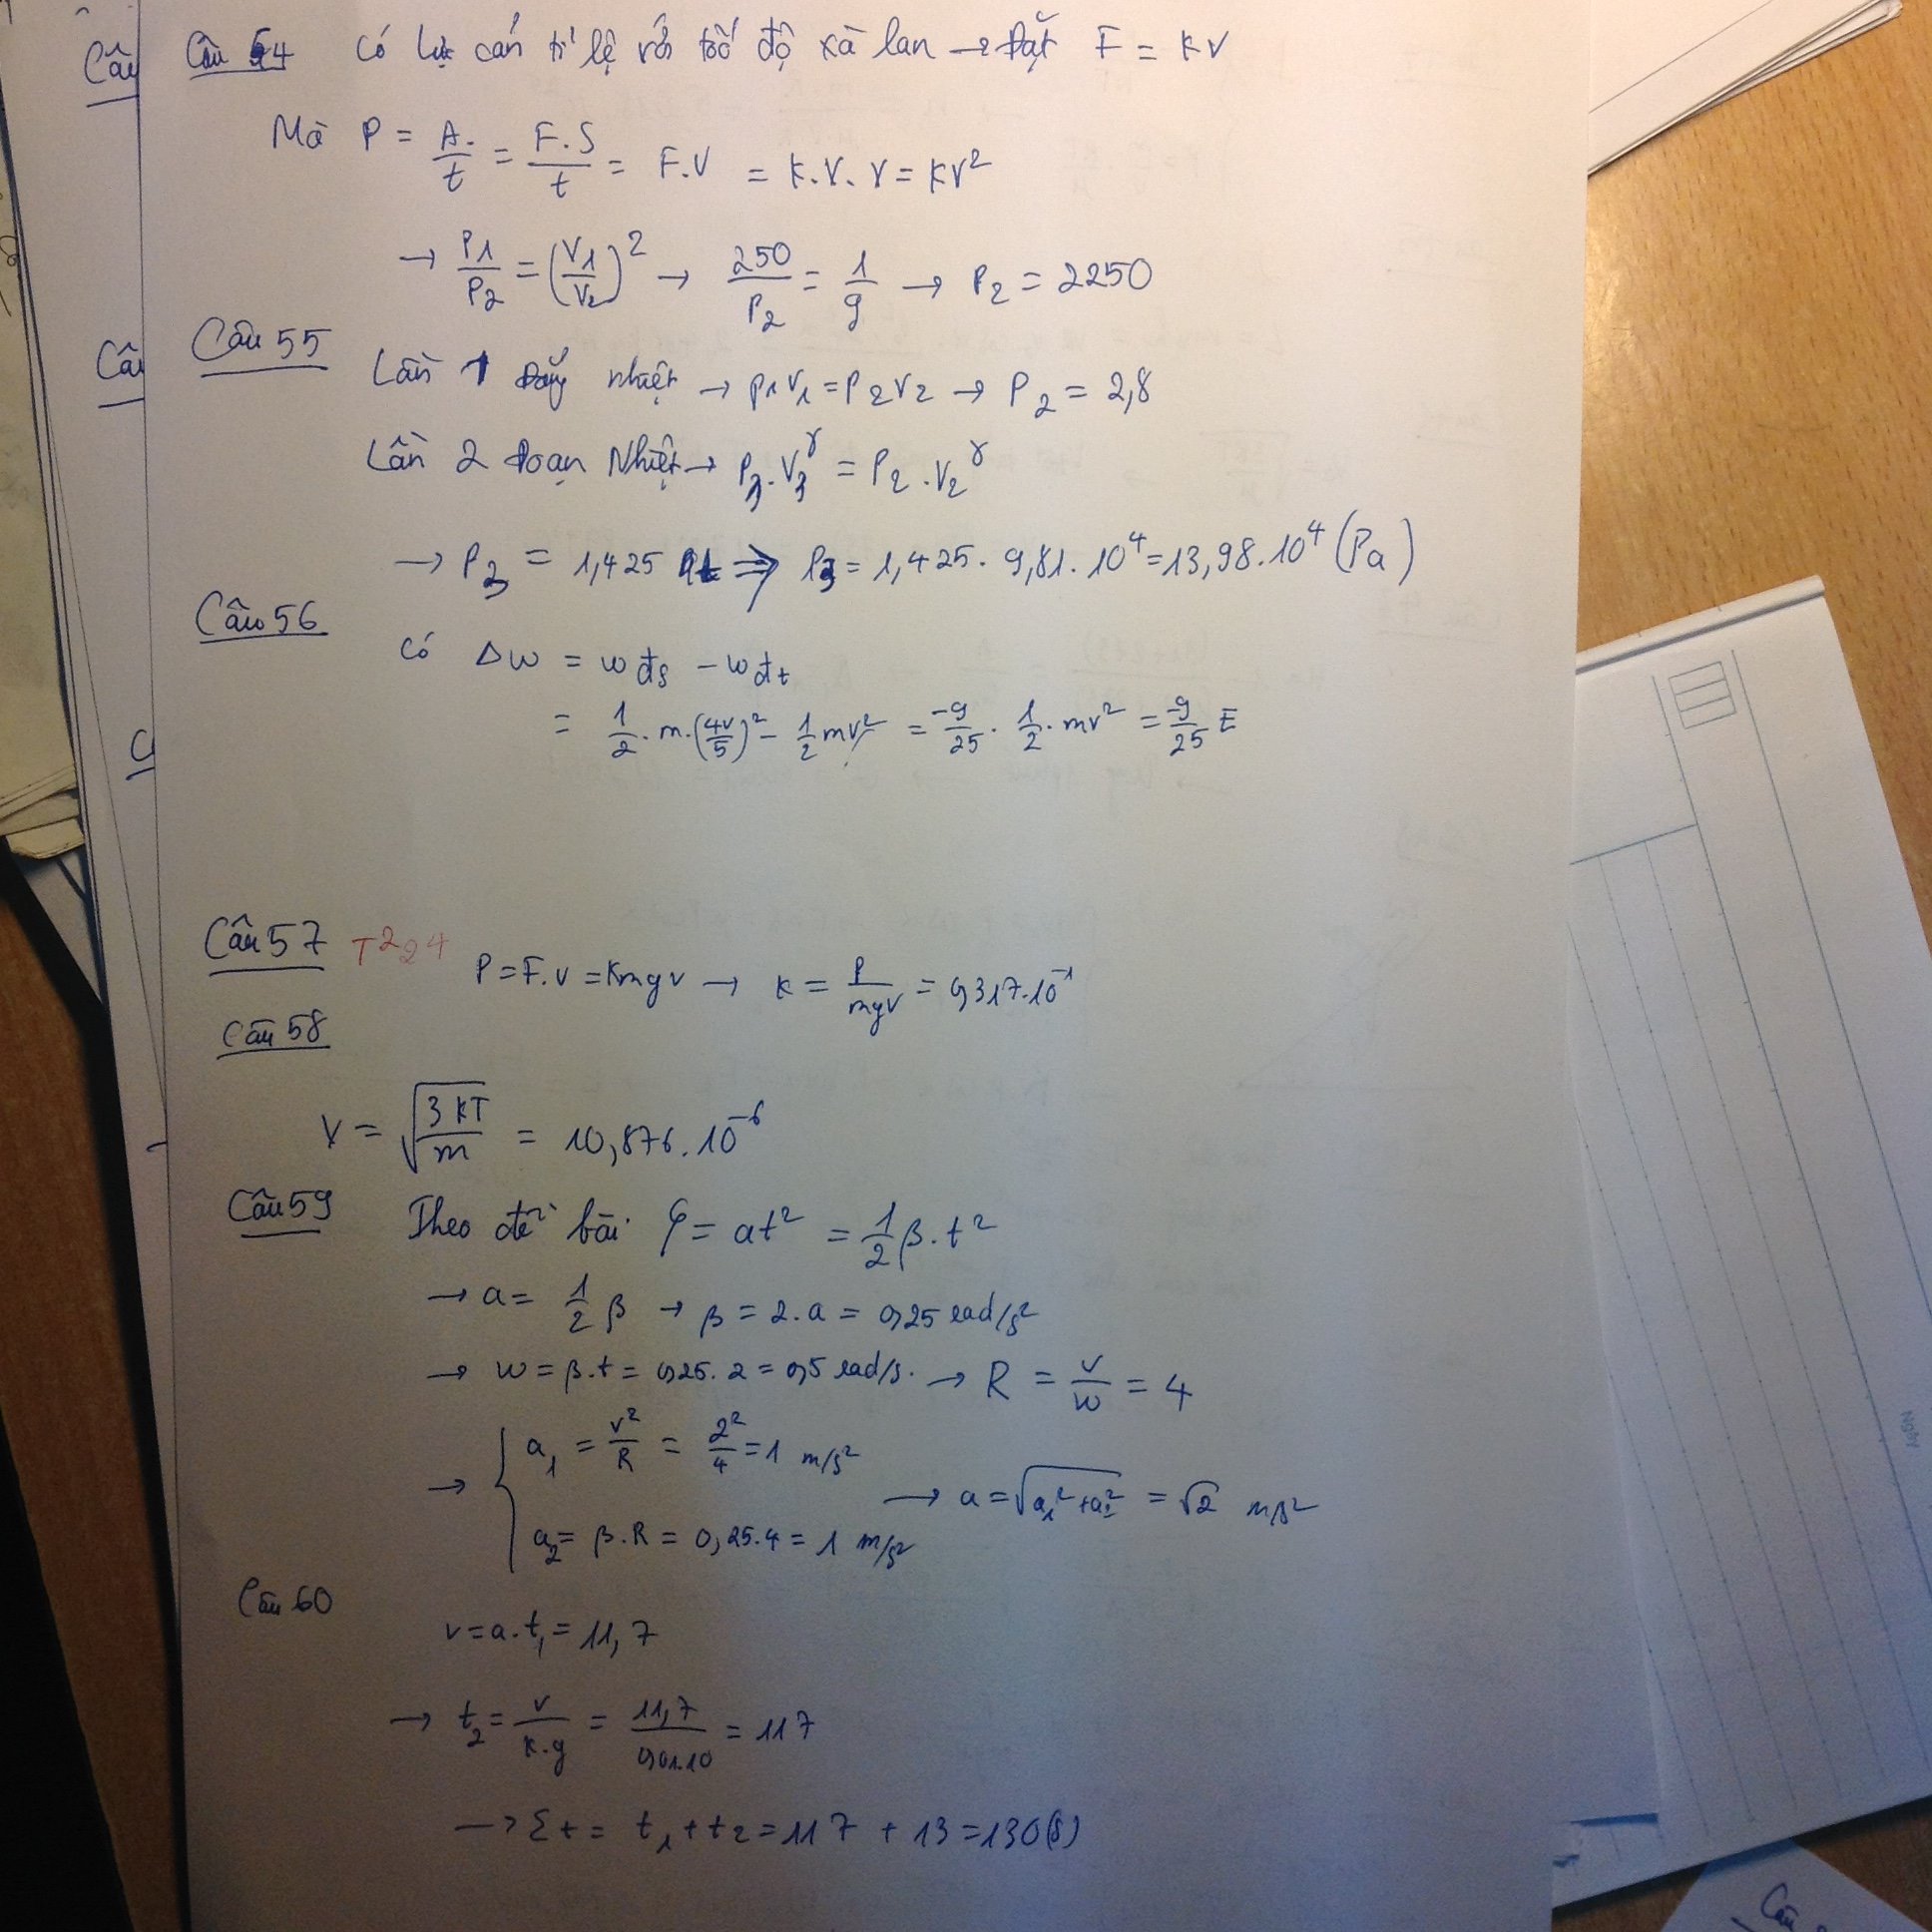 Câu 54 Có lực cản tỉ lệ với tốc độ xà lan → Đặt F = kv
Mà P = A/t = F.S/t = F.V = k.V.V = kv²
→ P1/P2 = (V1/V2)² → 250/P2 = 1/9 → P2 = 2250
Câu 55
Lần 1 Đẳng nhiệt → P1V1 = P2V2 → P2 = 2,8
Lần 2 Đoạn Nhiệt → P3.V3^γ = P2.V2^γ
→ P3 = 1,425 at ⇒ P3 = 1,425. 9,81. 10⁴ = 13,98.10⁴ (Pa)
Câu 56
Có Δw = wđs - wđt
= 1/2.m.(4v/5)² - 1/2mv² = -9/25.1/2.mv² = -9/25 E
Câu 57 T²24
P = F.v = kmgv → k = P/mgv = 0,317.10⁻¹
Câu 58
V = √(3kT/m) = 10,876.10⁻⁶
Câu 59 Theo đề bài φ = at² = 1/2β.t²
→ a = 1/2 β → β = 2.a = 0,25 rad/s²
→ w = β.t = 0,25.2 = 0,5 rad/s. → R = v/w = 4
→ { a1 = v²/R = 2²/4 = 1 m/s²
→ a = √(a1² + a2²) = √2 m/s²
a2 = β.R = 0,25.4 = 1 m/s²
Câu 60
v = a.t1 = 11,7
→ t2 = v/k.g = 11,7/0,01.10 = 117
→ Σt = t1 + t2 = 117 + 13 = 130(s)
Câu
Câu
C
Ngày
Câu